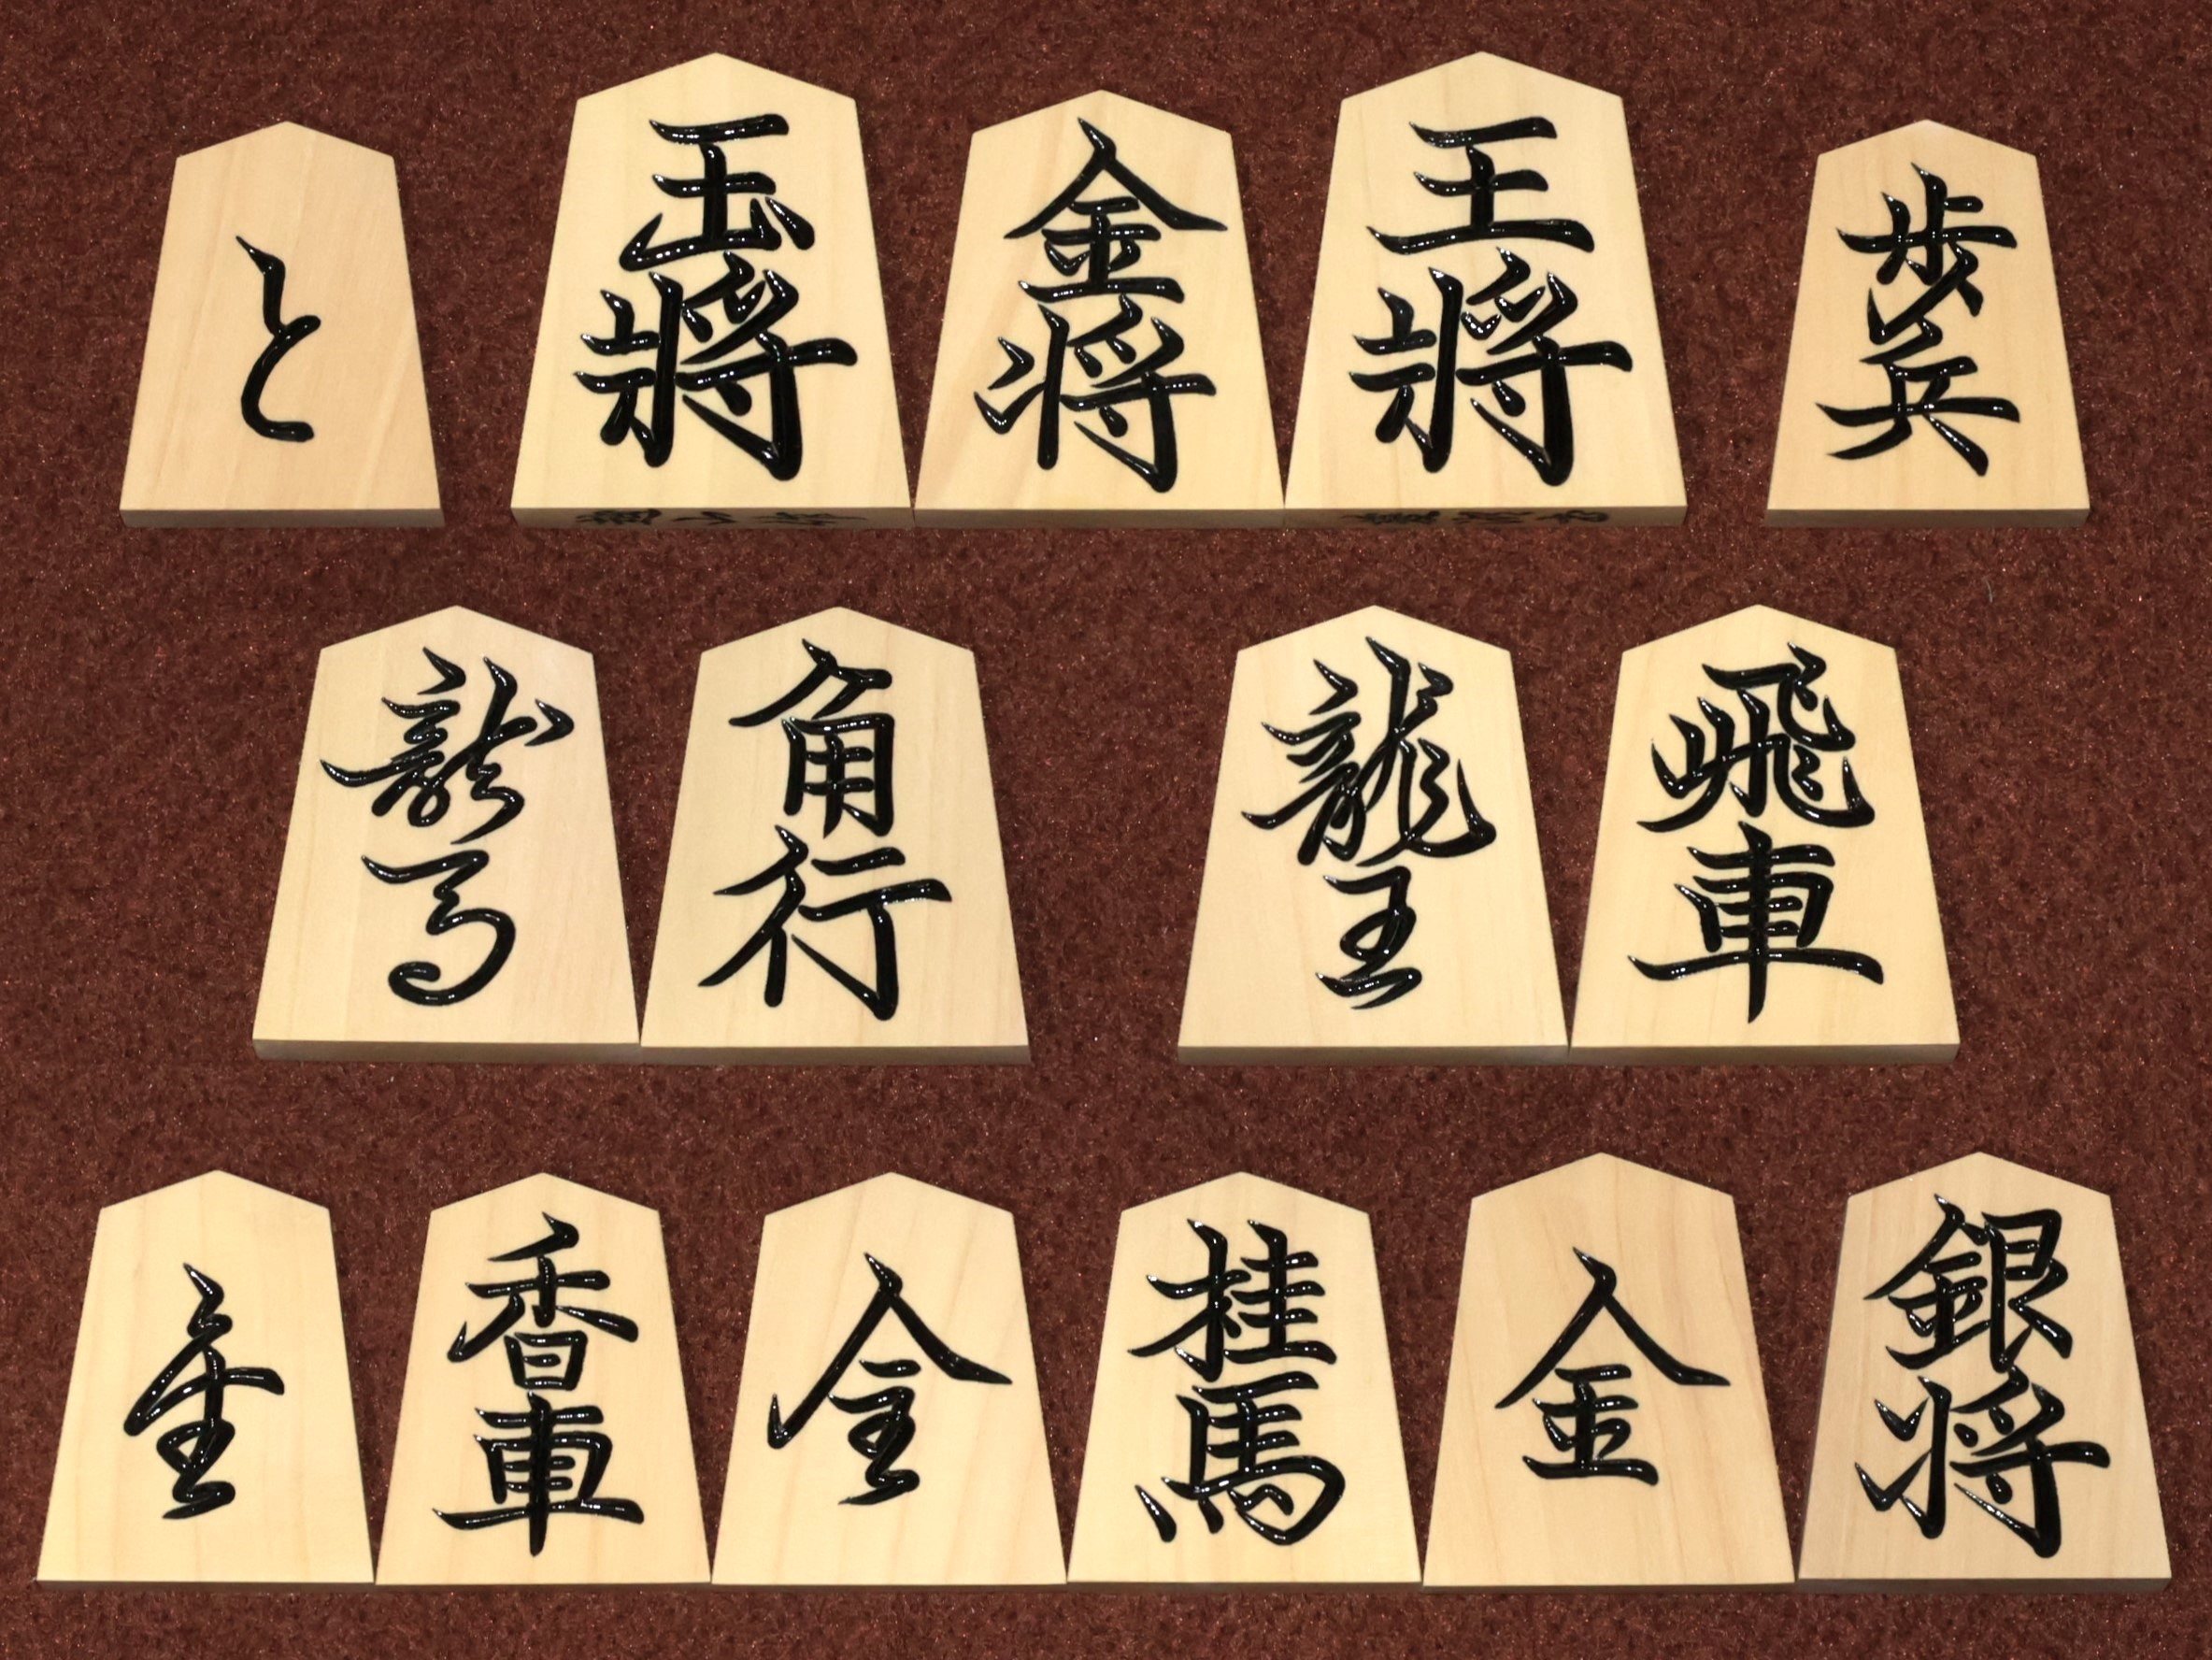 と 玉将 金将 王将 歩兵
龍馬 角行 龍王 飛車
金 香車 金 桂馬 金 銀将